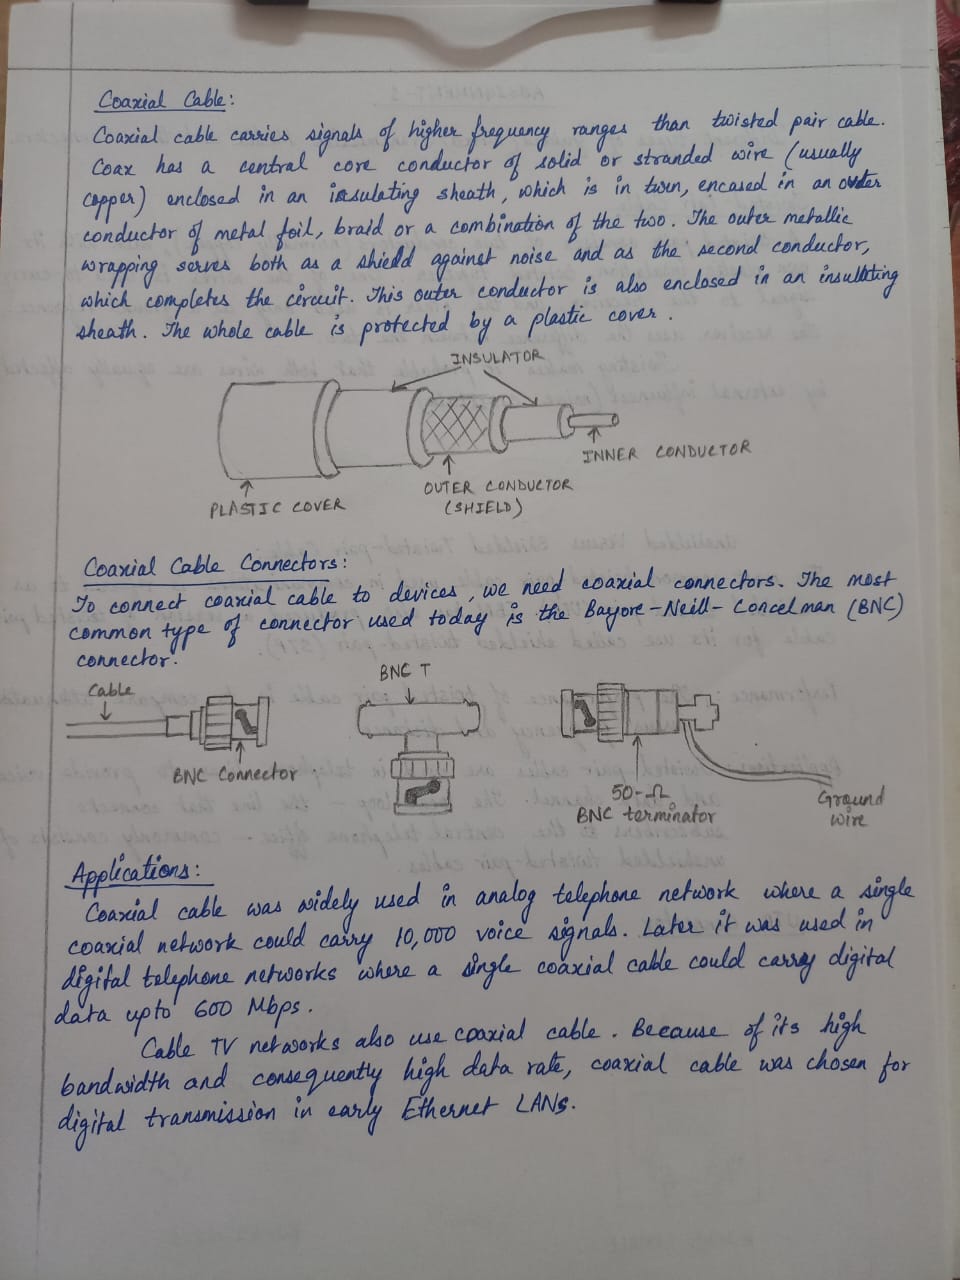 Coaxial Cable:
Coaxial cable carries signals of higher frequency ranges than twisted pair cable.
Coax has a central core conductor of solid or stranded wire (usually
copper) enclosed in an insulating sheath, which is in turn, encased in an outer
conductor of metal foil, braid or a combination of the two. The outer metallic
wrapping serves both as a shield against noise and as the second conductor,
which completes the circuit. This outer conductor is also enclosed in an insulating
sheath. The whole cable is protected by a plastic cover.
INSULATOR
INNER CONDUCTOR
OUTER CONDUCTOR
(SHIELD)
PLASTIC COVER
Coaxial Cable Connectors:
To connect coaxial cable to devices, we need coaxial connectors. The most
common type of connector used today is the Bayore-Neill-Concelman (BNC)
connector.
Cable
BNC T
BNC Connector
50-Ω
BNC terminator
Ground
wire
Applications:
Coaxial cable was widely used in analog telephone network where a single
coaxial network could carry 10,000 voice signals. Later it was used in
digital telephone networks where a single coaxial cable could carry digital
data upto 600 Mbps.
Cable TV networks also use coaxial cable. Because of its high
bandwidth and consequently high data rate, coaxial cable was chosen for
digital transmission in early Ethernet LANs.